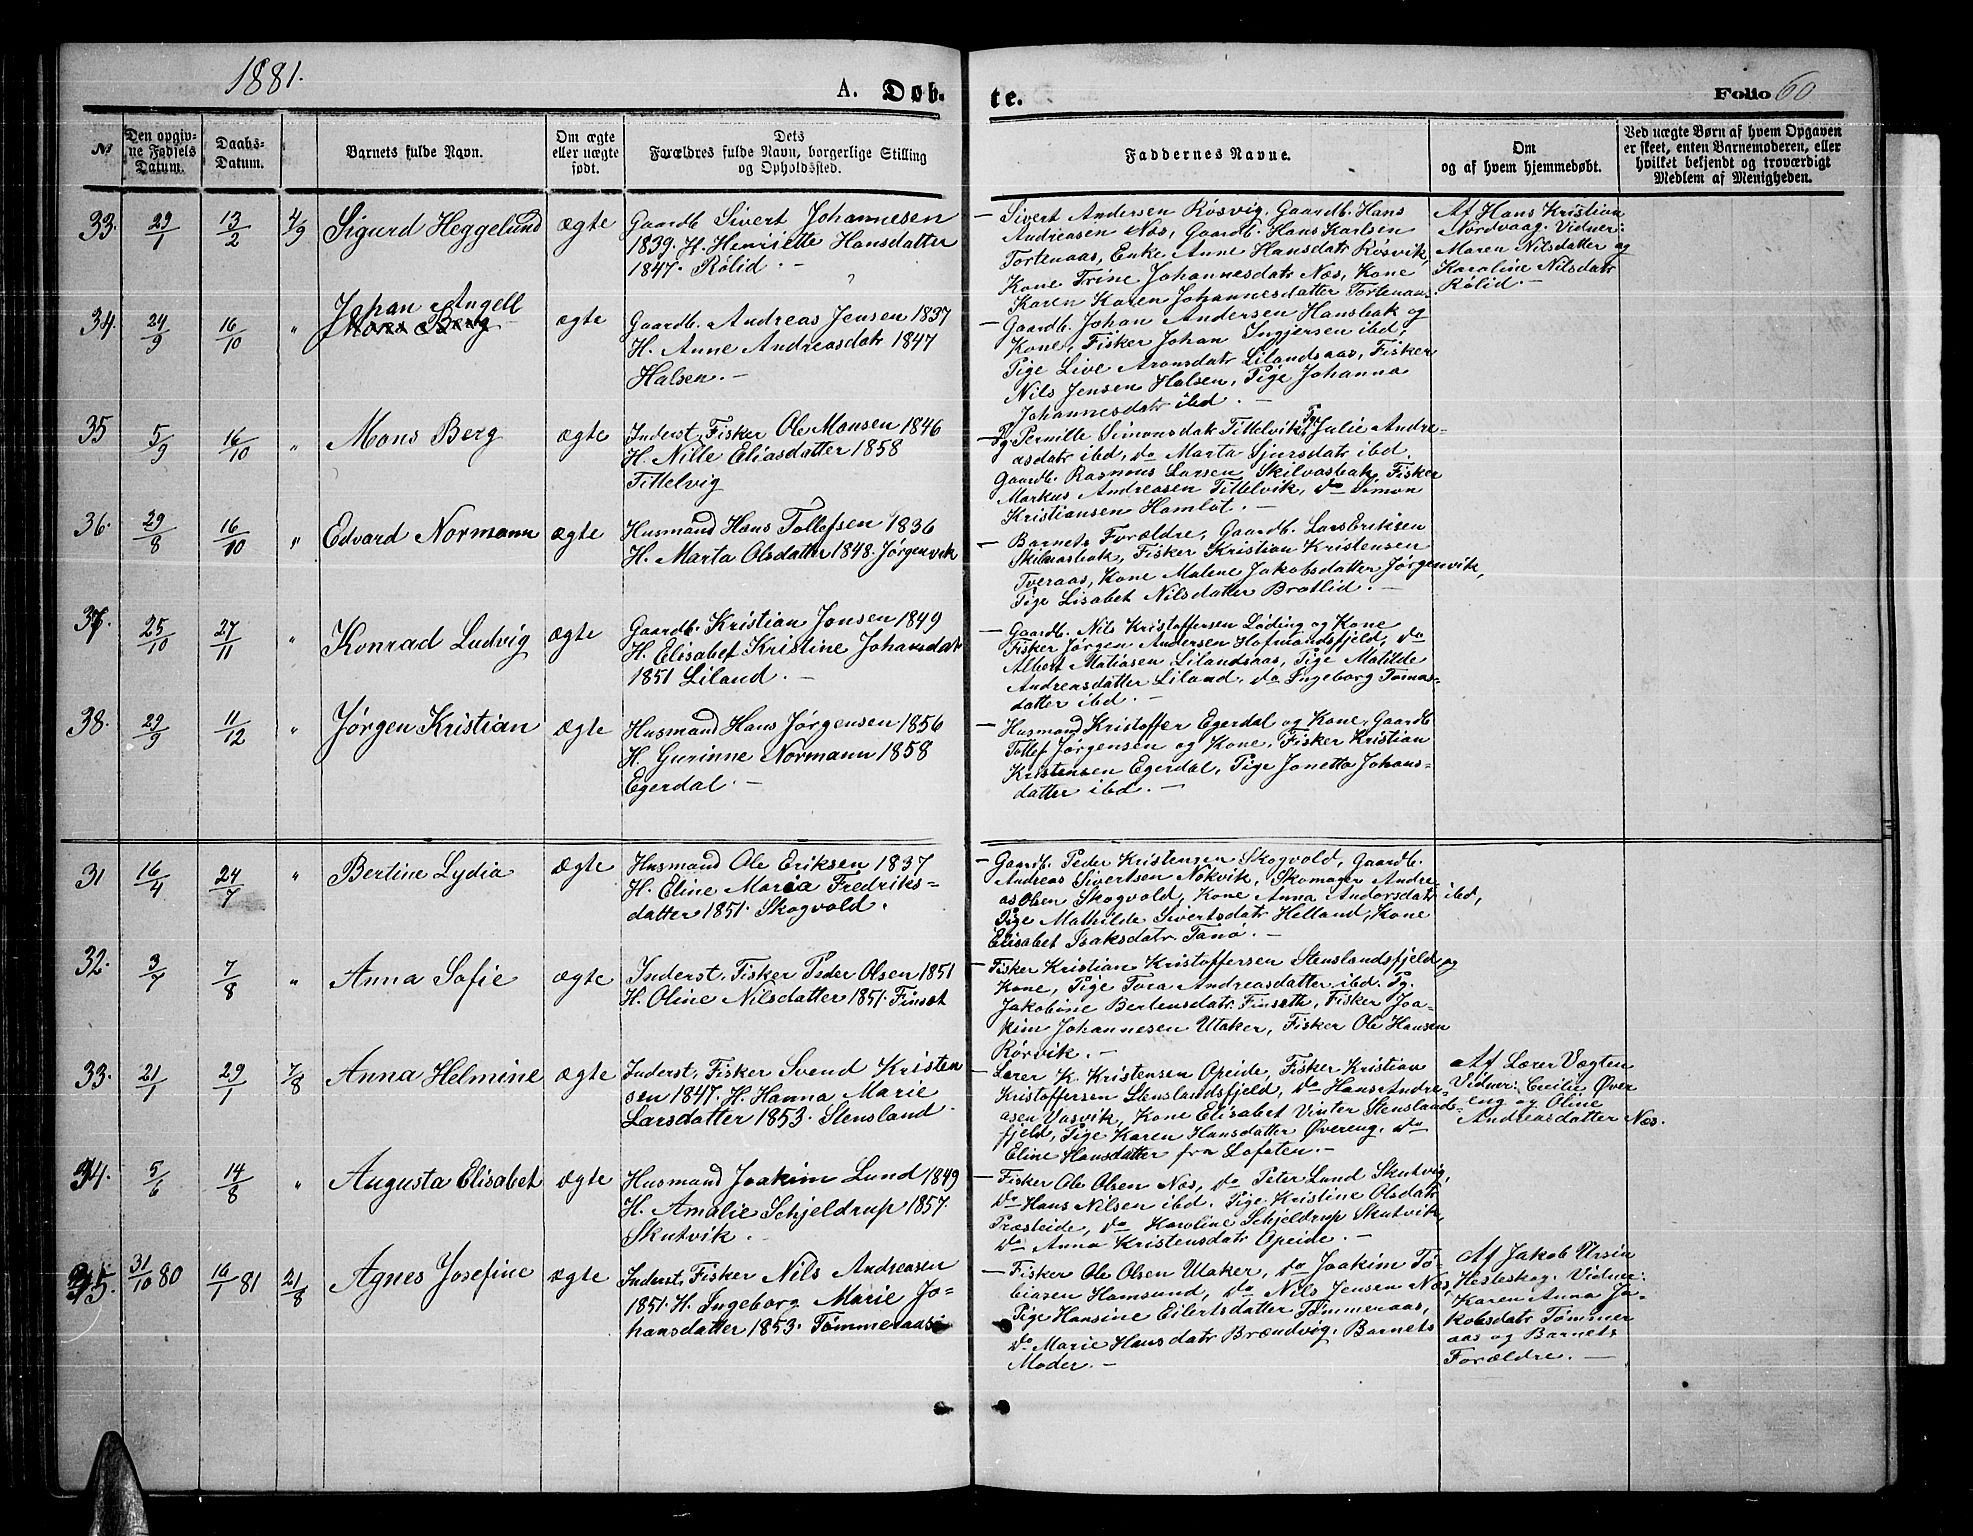 1881.
A. Døb-
te.
Folio 60
№
Den opgiv-
ne Fødsels
Datum.
Daabs-
Datum.
Barnets fulde Navn.
Om ægte
eller uægte
født.
Dets
Forældres fulde Navn, borgerlige Stilling
og Opholdssted.
Faddernes Navne.
Om
og af hvem hjemmedøbt.
Ved uægte Børn af hvem Opgaven
er skeet, enten Barnemoderen, eller
hvilket bekjendt og troværdigt
Medlem af Menigheden.
33. 29/1 13/2 4/9 Sigurd Heggelund ægte
Gaardb. Sivert Johannesen
1839. H. Henriette Hansdatter
1847. Rølid. —
— Sivert Andersen Røsvig, Gaardb. Hans
Andreasen Næs, Gaardb. Hans Karlsen
Tortenaas, Enke Anne Hansdatr Røsvik,
Kone Trine Johannesdatr Næs, Kone
Karen Karen Johannesdatter Tortenaas.
Af Hans Kristian
Nordvaag. Vidner:
Maren Nilsdatter og
Karoline Nilsdatr
Rølid. —
34. 24/9 16/10 " Johan Angell
Mons Berg
ægte
Gaardb. Andreas Jensen 1837
H. Anne Andreasdatr 1847
Halsen. —
— Gaardb. Johan Andersen Hansbak og
Kone, Fisker Johan Ingjersen ibd,
Pige Live Aronsdatr Lilandsaas, Fisker
Nils Jensen Halsen, Pige Johanna
Johannesdatr ibd. —
35 5/9 16/10 " Mons Berg ægte
Inderst, Fisker Ole Monsen 1846
H. Nille Eliasdatter 1858
Tittelvig
— Pg Pernille Simonsdatr Tittelvik, Pge Julie Andre-
asdatr ibd, do Marta Sjursdatr ibd,
Gaardb. Rasmus Larsen Skilvasbak, Fisker
Markus Andreasen Tittelvik, do Simon
Kristiansen Hamlot. —
36. 29/8 16/10 " Edvard Normann ægte
Husmand Hans Tollefsen 1836
H. Marta Olsdatter 1848. Jørgenvik
— Barnets Forældre, Gaardb. Lars Eriksen
Skilvasbak, Fisker Kristian Kristensen
Tveraas, Kone Malene Jakobsdatter Jørgenvik,
Pige Lisabet Nilsdatter Bratlid. —
37. 25/10 27/11 " Konrad Ludvig ægte
Gaardb. Kristian Jonsen 1849
H. Elisabet Kristine Johansdatr
1851 Liland. —
— Gaardb. Nils Kristoffersen Løding og Kone
Fisker Jørgen Andersen Hofmandsfjeld, do
Albert Matiasen Lilandsaas, Pige Matilde
Andreasdatter Liland, do Ingeborg Tomas-
datter ibd. —
38. 29/9 11/12 " Jørgen Kristian ægte
Husmand Hans Jørgensen 1856
H. Gurinne Normann 1858
Egerdal. —
— Husmand Kristoffer Egerdal og Kone, Gaardb
Tollef Jørgensen og Kone, Fisker Kristian
Kristensen Egerdal, Pige Jonetta Johans-
datter ibd. —
31 16/4 24/7 " Bertine Lydia ægte
Husmand Ole Eriksen 1837
H. Eline Maria Fredriks-
datter 1851. Skogvold.
— Gaardb. Peder Kristensen Skogvold, Gaardb.
Andreas Sivertsen Nøkvik, Skomager Andre
as Olsen Skogvold, Kone Anna Andorsdatr ibd,
Pige Mathilde Sivertsdatr Helland, Kone
Elisabet Isaksdatr. Tanø. —
32. 3/7 7/8 " Anna Sofie ægte
Inderst. Fisker Peder Olsen 1851
H. Oline Nilsdatter 1851. Finset
— Fisker Kristian Kristoffersen Stenslandsfjeld og
Kone, Pige Tora Andreasdatter ibd. Pg.
Jakobine Bertensdatr. Finseth, Fisker Joa-
kim Johannesen Utaker, Fisker Ole Hansen
Rørvik. —
33. 21/1 29/1 7/8 Anna Helmine ægte
Inderst, Fisker Svend Kristen
sen 1847. H. Hanna Marie
Larsdatter 1853. Stensland.
— Lærer K. Kristensen Opeide, Fisker Kristian
Kristoffersen Stenslandsfjeld, do Hans Andre-
asen Vasvik, Kone Elisabet Vinter Stenslands-
fjeld, Pige Karen Hansdatter Øvereng, do
Eline Hansdatter fra Lofoten. —
Af Lærer Vægten
Vidner: Cecilie Øver
eng og Oline
Andreasdatter Næs.
34. 5/6 14/8 " Augusta Elisabet ægte
Husmand Joakim Lund 1849
H. Amalie Schjeldrup 1857.
Skutvik. —
— Fisker Ole Olsen Næs, do Peter Lund Skutvig,
do Hans Nilsen ibd. Pige Kristine Olsdatr
Præsteide, do Karoline Schjeldrup Skutvik,
do Anna Kristensdatr Opeide. —
35. 31/10 80 16/1 81 21/8 Agnes Josefine ægte
Inderst, Fisker Nils Andreasen
1851. H. Ingeborg Marie Jo-
hansdatter 1853. Tømmeraas.
— Fisker Ole Olsen Utaker, do Joakim To-
biasen Hamsund, do Nils Jensen Næs,
Pige Hansine Eilertsdatter Tømmeraas,
do Marie Hansdatr Brændvog, Barnets
Moder. —
Af Jakob Ursin
Hesteskog. Vidner:
Karen Anna Ja-
kobsdatr Tømmer
aas og Barnets
Forældre. —